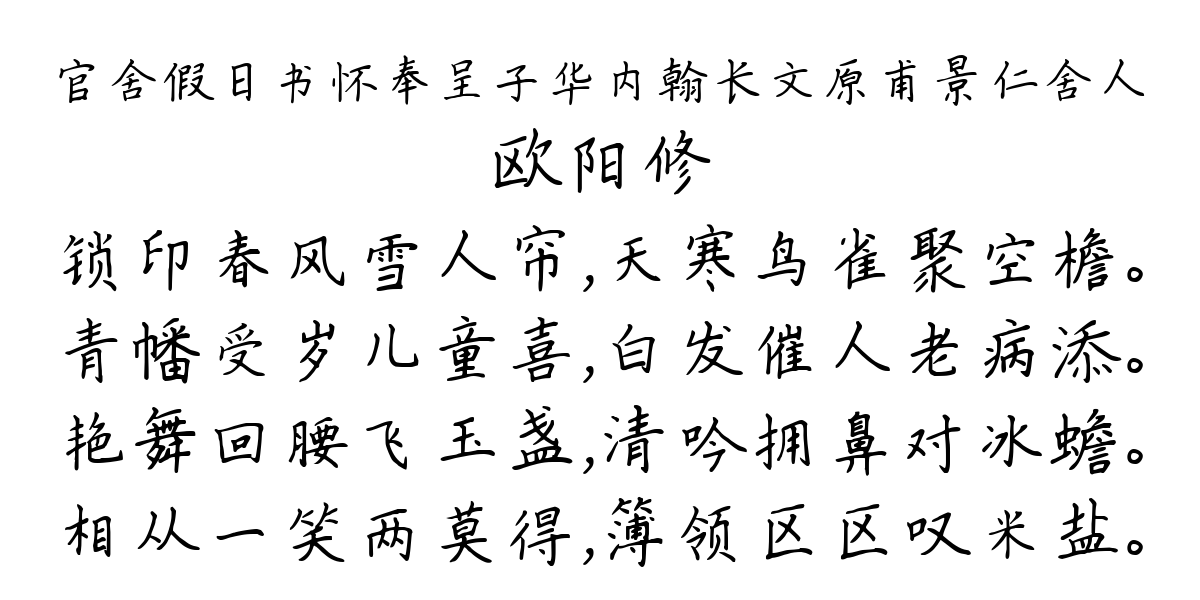 官舍假日书怀奉呈子华内翰长文原甫景仁舍人
欧阳修
锁印春风雪人帘,天寒鸟雀聚空檐。
青幡受岁儿童喜,白发催人老病添。
艳舞回腰飞玉盏,清吟拥鼻对冰蟾。
相从一笑两莫得,簿领区区叹米盐。